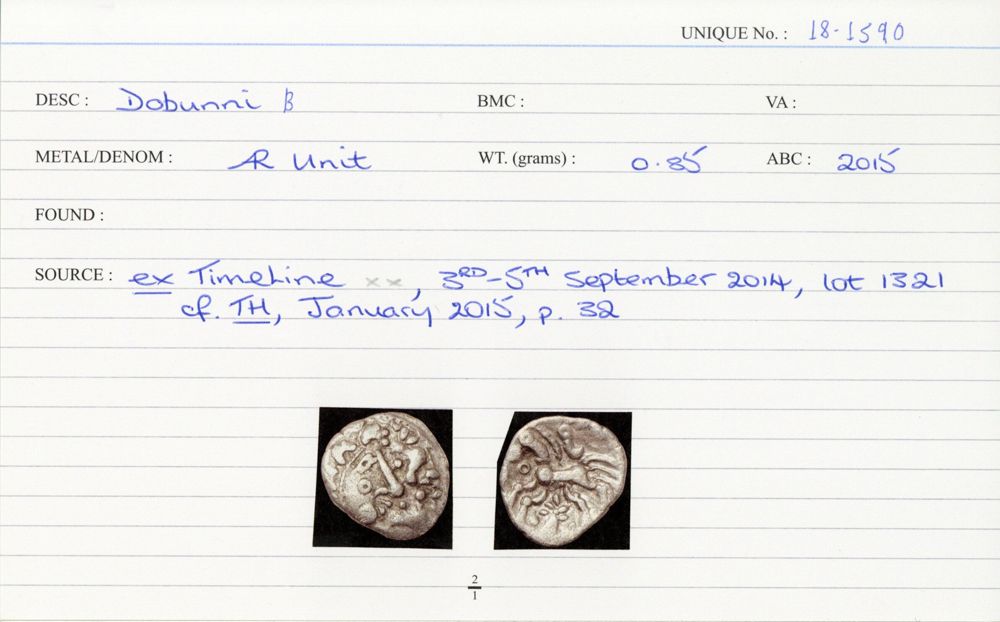 UNIQUE No. : 18-1590
DESC : Dobunni B BMC : VA :
METAL/DENOM : AR Unit WT. (grams) : 0.85 ABC : 2015
FOUND :
SOURCE : ex Timeline xx, 3RD-5TH September 2014, lot 1321
cf. TH, January 2015, p. 32
2
1